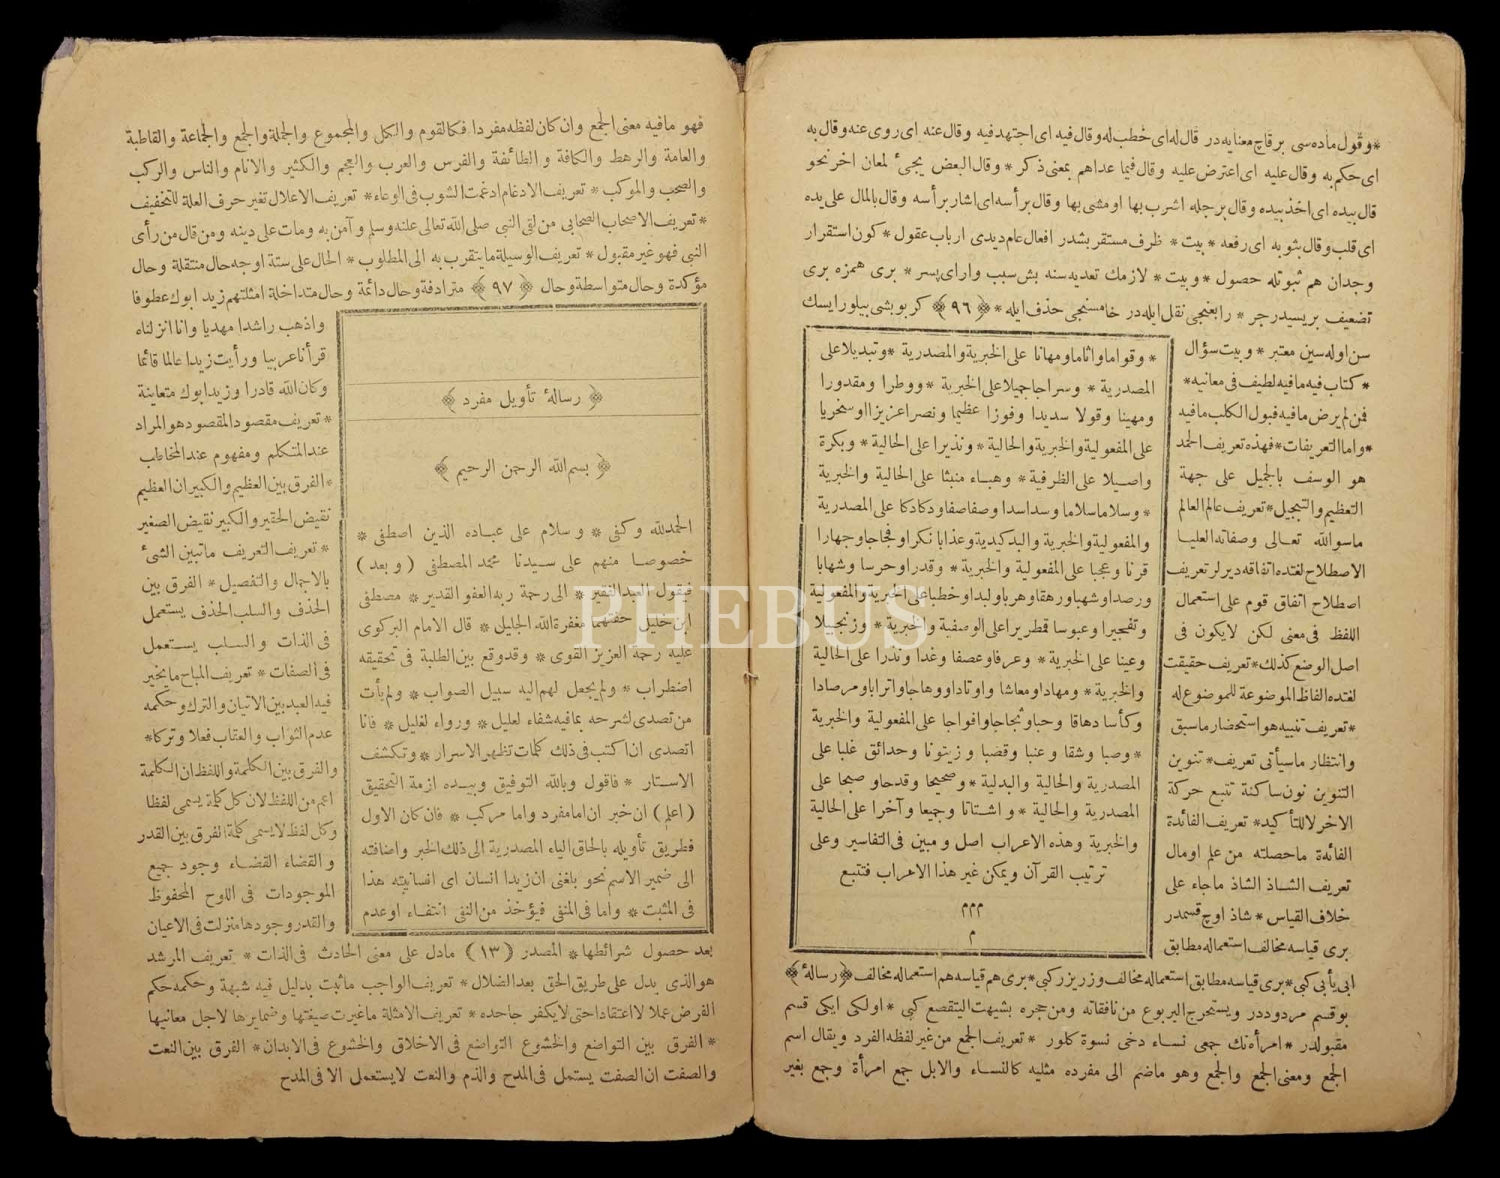 *وقول ماده‌سى برقاچ معنايه‌در قال له اى خطب له وقال فيه اى اجتهد فيه وقال عنه اى روى عنه وقال به
اى حكم به وقال عليه اى اعترض عليه وقال فيما عداهم بمعنى ذكر * وقال البعض يجئ لمعان اخر نحو
قال بيده اى اخذ بيده وقال برجله اشرب بها او مشى بها وقال برأسه اى اشار برأسه وقال بالمال على يده
اى قلب وقال بثوبه اى رفعه * بيت * ظرف مستقر بشدر افعال عام ديدى ارباب عقول * كون استقرار
وجدان هم ثبوتله حصول * وبيت * لازمك تعديه‌سنه بش سبب واراى پسر * برى همزه برى
تضعيف بريسيدرجر * رابعنجى نقل ايله‌در خامسنجى حذف ايله * ﴿ ٩٦ ﴾ كر بو بشى بيلور ايسك
سن اوله‌سين معتبر * وبيت سؤال
* كتاب فيه مافيه لطيف فى معانيه *
فمن لم يرض مافيه فبول الكلب مافيه
* واما التعريفات * فهذه تعريف الحمد
هو الوسف بالجميل على جهة
التعظيم والتبجيل * تعريف عالم العالم
ماسوالله تعالى وصفاته العليا
الاصطلاح لغتده اتفاقه ديرلر تعريف
اصطلاح اتفاق قوم على استعمال
اللفظ فى معنى لكن لايكون فى
اصل الوضع كذلك * تعريف حقيقت
لغتده الفاظ الموضوعة للموضوع له
* تعريف تنبيه هو استحضار ماسبق
وانتظار ماسيأتى تعريف * تنوين
التنوين نون ساكنة تتبع حركة
الاخر لا للتأكيد * تعريف الفائدة
الفائدة ماحصلته من علم او مال
تعريف الشاذ الشاذ ماجاء على
خلاف القياس * شاذ اوچ قسمدر
برى قياسه مخالف استعماله مطابق
* وقواما واثاما ومهانا على الخبرية والمصدرية * وتبديلا على
المصدرية * وسراجا جميلا على الخبرية * ووطرا ومقدورا
ومهينا وقولا سديدا وفوزا عظيما ونصرا عزيزا او سنخريا
على المفعولية والخبرية والحالية * ونذيرا على الحالية * وبكرة
واصيلا على الظرفية * وهباء منبثا على الحالية والخبرية
* وسلاما سلاما وسدا سدا وصفا صفا ودكا دكا على المصدرية
والمفعولية والخبرية والبدكيدية وعذابا نكرا وفجاجا وجهارا
قرنا وعجبا على المفعولية والخبرية * وقدرا وحرسا وشهابا
ورصدا وشهبا ورهقا وهربا ولبدا وخطبا على الخبرية والمفعولية
وتفجيرا وعبوسا قمطريرا على الوصفية والخبرية * وزنجبيلا
وعينا على الخبرية * وعرفا وعصفا وغدا ونذرا على الحالية
والخبرية * ومهادا ومعاشا واوتادا ووهاجا واترابا ومرصادا
وكأسا دهاقا وحبا وثجاجا وافواجا على المفعولية والخبرية
* وصبا وشقا وعنبا وقضبا وزيتونا وحدائق غلبا على
المصدرية والحالية والبدلية * وصحيحا وقدحا وصبحا على
المصدرية والحالية * واشتاتا وجميعا وآخرا على الحالية
والخبرية وهذه الاعراب اصل ومبين فى التفاسير وعلى
ترتيب القرآن ويمكن غير هذا الاعراب فتتبع
ممم
م
ابى يأبى كبى * برى قياسه مطابق استعماله مخالف وزر يزر كبى * برى هم قياسه هم استعماله مخالف ﴿ رسالهٔ ﴾
بو قسم مردوددر ويستخرج اليربوع من نافقائه ومن حجره بشيهت اليتقصع كبى * اولكى ايكى قسم
مقبولدر * امرأه‌نك جمعى نساء دخى نسوة كلور * تعريف الجمع من غير لفظه الفرد ويقال اسم
الجمع ومعنى الجمع والجمع وهو ماضم الى مفرده مثليه كالنساء والابل جمع امرأة وجمع بغير
فهو مافيه معنى الجمع وان كان لفظه مفردا فكالقوم والكل والمجموع والجملة والجمع والجماعة والقاطبة
والعامة والرهط والكافة والطائفة والفرس والعرب والعجم والكثير والانام والناس والركب
والصحب والموكب * تعريف الادغام ادغمت الشوب فى الوعاء * تعريف الاعلال تغير حرف العلة للتخفيف
* تعريف الاصحاب الصحابى من لقى النبى صلى الله تعالى عليه وسلم وآمن به ومات على دينه ومن قال من رأى
النبى فهو غير مقبول * تعريف الوسيلة ما يتقرب به الى المطلوب * الحال على ستة اوجه حال منتقلة وحال
مؤكدة وحال متواسطة وحال ﴿ ٩٧ ﴾ مترادفة وحال دائمة وحال متداخلة امثلتهم زيد ابوك عطوفا
واذهب راشدا مهديا وانا انزلناه
قرأنا عربيا ورأيت زيدا عالما قائما
وكان الله قادرا وزيد ابوك متعاينة
* تعريف مقصود المقصود هو المراد
عند المتكلم ومفهوم عند المخاطب
* الفرق بين العظيم والكبير ان العظيم
نقيض الحقير والكبير نقيض الصغير
* تعريف التعريف ماتبين الشئ
بالاجمال والتفصيل * الفرق بين
الحذف والسلب الحذف يستعمل
فى الذات والسلب يستعمل
فى الصفات * تعريف المباح ما يخير
فيه العبد بين الاتيان والترك وحكمه
عدم الثواب والعقاب فعلا وتركا *
والفرق بين الكلمة واللفظ ان الكلمة
اعم من اللفظ لان كل كلمة يسمى لفظا
وكل لفظ لا يسمى كلمة الفرق بين القدر
والقضاء القضاء وجود جميع
الموجودات فى اللوح المحفوظ
والقدر وجودها منزلت فى الاعيان
﴿ رسالهٔ تأويل مفرد ﴾
﴿ بسم الله الرحمن الرحيم ﴾
الحمدلله وكفى * وسلام على عباده الذين اصطفى *
خصوصا منهم على سيدنا محمد المصطفى ( وبعد )
فيقول العبد الفقير * الى رحمة ربه العفو القدير * مصطفى
ابن خليل حفتهما مغفرة الله الجليل * قال الامام البركوى
عليه رحمة العزيز القوى * وقد وقع بين الطلبة فى تحقيقه
اضطراب * ولم يجعل لهم اليه سبيل الصواب * ولم يأت
من تصدى لشرحه بمافيه شفاء لعليل * ورواء لغليل * فانا
اتصدى ان اكتب فى ذلك كلمات تظهر الاسرار * وتكشف
الاستار * فاقول وبالله التوفيق وبيده ازمة التحقيق
( اعلم ) ان خبر ان اما مفرد واما مركب * فان كان الاول
فطريق تأويله بالحاق الياء المصدرية الى ذلك الخبر واضافته
الى ضمير الاسم نحو بلغنى ان زيدا انسان اى انسانيته هذا
فى المثبت * واما فى المنفى فيؤخذ من النفى انتفاء او عدم
بعد حصول شرائطها * المصدر ( ١٣ ) مادل على معنى الحادث فى الذات * تعريف المرشد
هو الذى يدل على طريق الحق بعد الضلال * تعريف الواجب ماثبت بدليل فيه شبهة وحكمه حكم
الفرض عملا لا اعتقادا حتى لا يكفر جاحده * تعريف الامثلة ماغيرت صيغتها وضمايرها لاجل معانيها
* الفرق بين التواضع والخشوع التواضع فى الاخلاق والخشوع فى الابدان * الفرق بين النعت
والصفت ان الصفت يستمل فى المدح والذم والنعت لا يستعمل الا فى المدح
PHEBUS